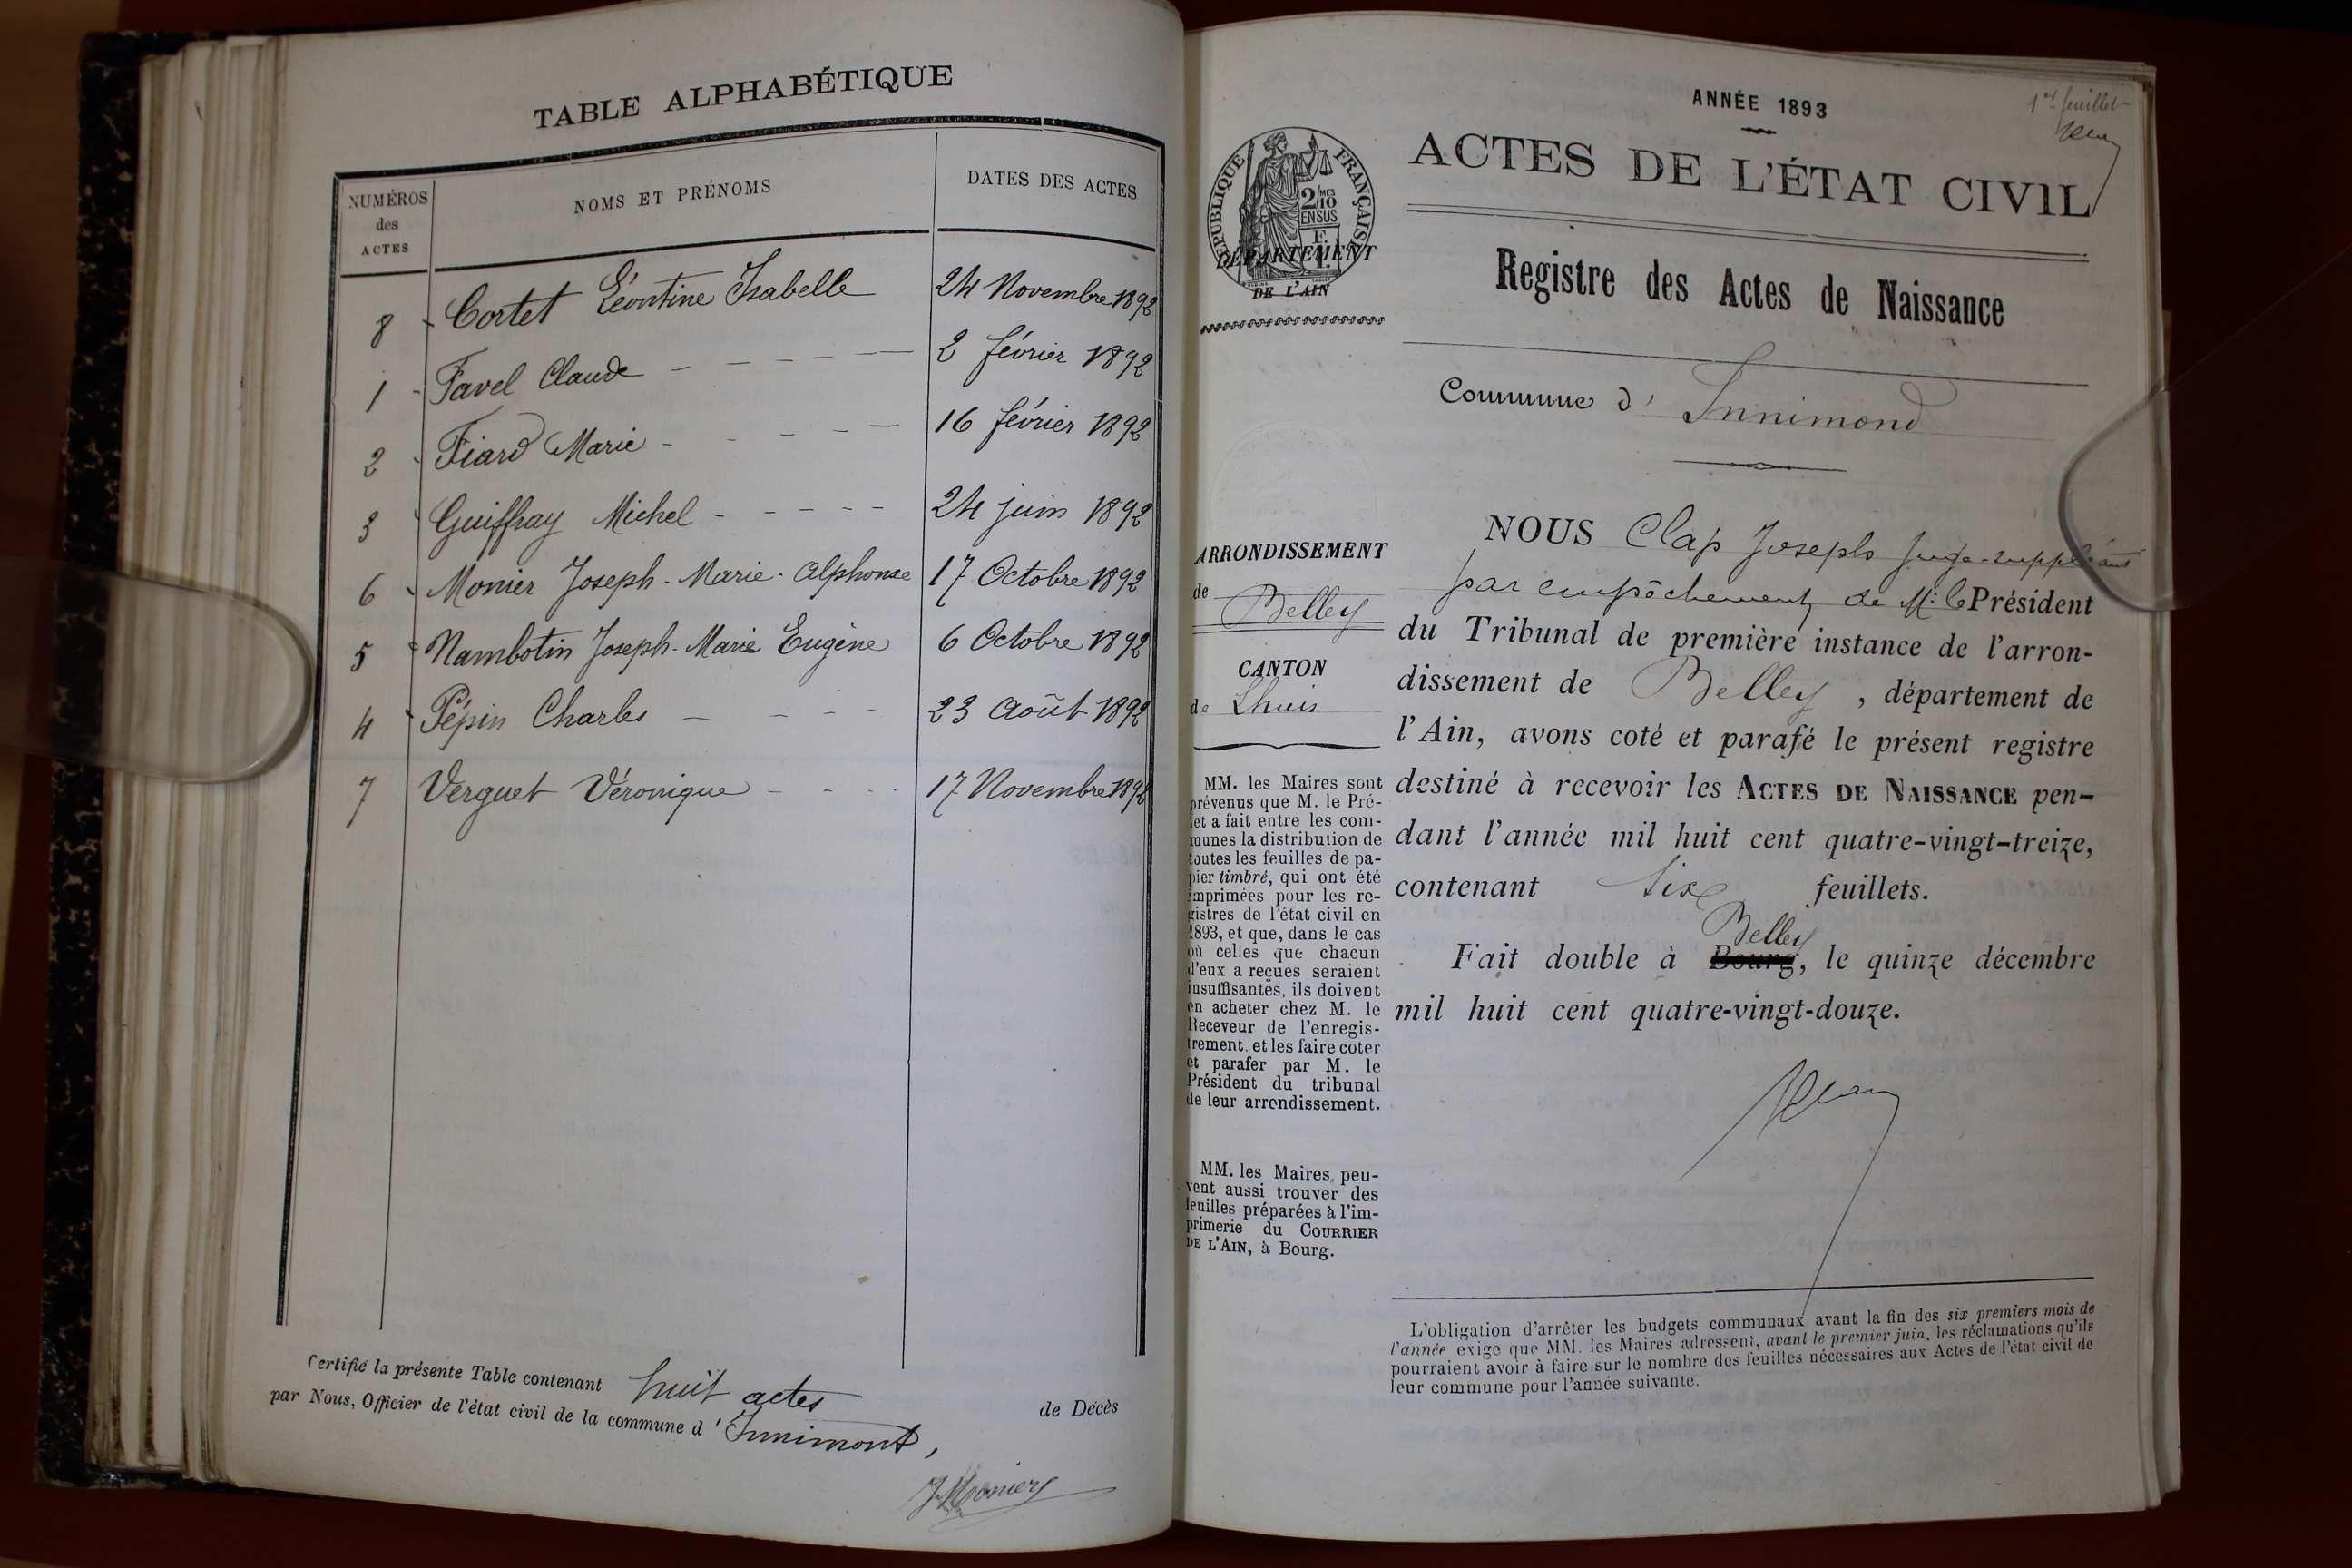 TABLE ALPHABÉTIQUE
NUMÉROS
des
ACTES
NOMS ET PRÉNOMS
DATES DES ACTES
8 Cortet Léontine Isabelle 24 Novembre 1892
1 Favel Claude 2 février 1892
2 Fiard Marie 16 février 1892
3 Guiffray Michel 24 juin 1892
6 Monier Joseph-Marie-Alphonse 17 Octobre 1892
5 Nambotin Joseph-Marie Eugène 6 Octobre 1892
4 Pépin Charles 23 Août 1892
7 Verguet Véronique 17 Novembre 1892
Certifié la présente Table contenant huit actes de Décès
par Nous, Officier de l'état civil de la commune d'Innimont,
J. Moniery
1er feuillet
ANNÉE 1893
ACTES DE L'ÉTAT CIVIL
RÉPUBLIQUE FRANÇAISE
2/10
EN SUS
DÉPARTEMENT
DE L'AIN
Registre des Actes de Naissance
Commune d'Innimond
ARRONDISSEMENT
de Belley
CANTON
de Lhuis
MM. les Maires sont
prévenus que M. le Pré-
fet a fait entre les com-
munes la distribution de
toutes les feuilles de pa-
pier timbré, qui ont été
imprimées pour les re-
gistres de l'état civil en
1893, et que, dans le cas
où celles que chacun
d'eux a reçues seraient
insuffisantes, ils doivent
en acheter chez M. le
Receveur de l'enregis-
trement. et les faire coter
et parafer par M. le
Président du tribunal
de leur arrondissement.
MM. les Maires peu-
vent aussi trouver des
feuilles préparées à l'im-
primerie du COURRIER
DE L'AIN, à Bourg.
NOUS Clap Joseph Juge-suppléant
par empêchement de Mr. le Président
du Tribunal de première instance de l'arron-
dissement de Belley, département de
l'Ain, avons coté et parafé le présent registre
destiné à recevoir les ACTES DE NAISSANCE pen-
dant l'année mil huit cent quatre-vingt-treize,
contenant six feuillets.
Belley
Fait double à Bourg, le quinze décembre
mil huit cent quatre-vingt-douze.
L'obligation d'arrêter les budgets communaux avant la fin des six premiers mois de
l'année exige que MM. les Maires adressent, avant le premier juin, les réclamations qu'ils
pourraient avoir à faire sur le nombre des feuilles nécessaires aux Actes de l'état civil de
leur commune pour l'année suivante.